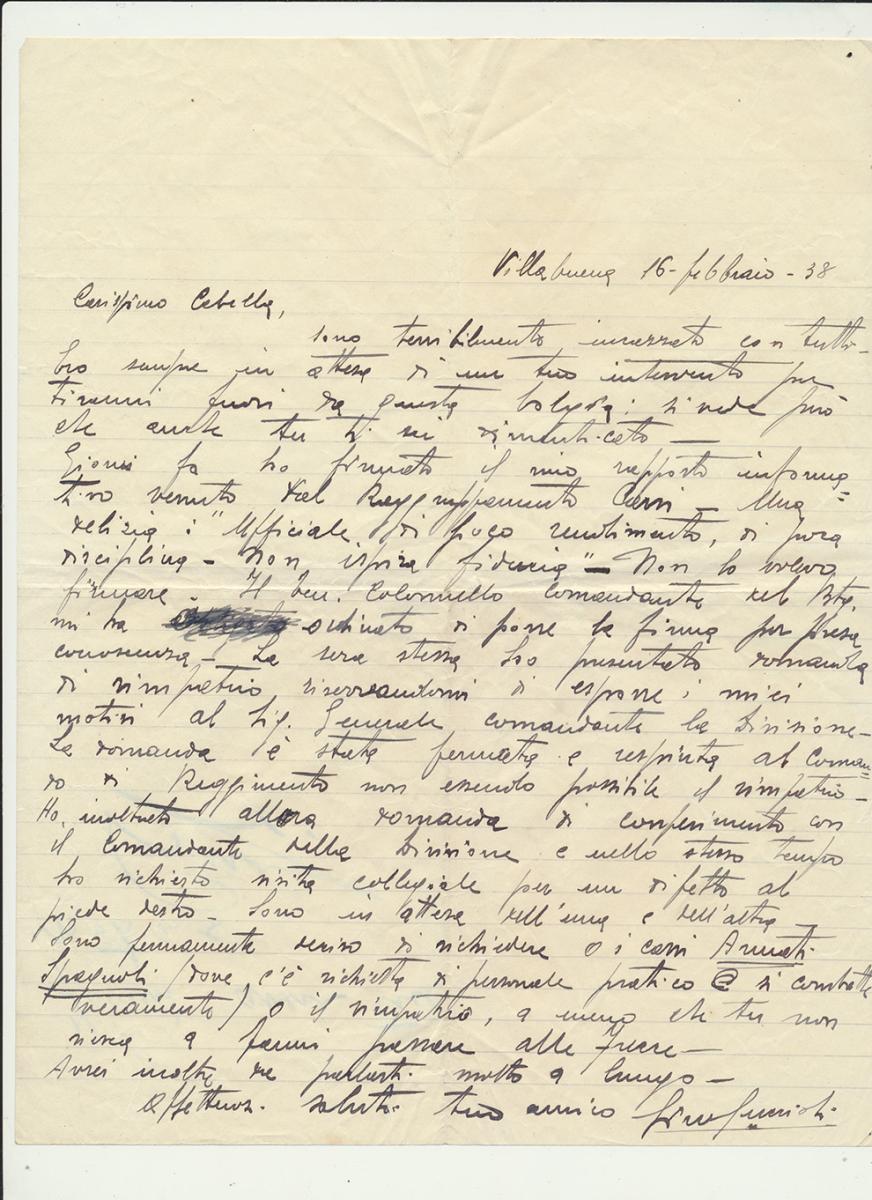 Villabuena 16-febbraio-38
Carissimo Cabella,
sono terribilmente incazzato con tutti-
Ero sempre in attesa di un tuo intervento per
tirarmi fuori da questa bolgia: si vede però
che anche tu ti sei dimenticato —
Giorni fa ho firmato il mio rapporto informa=
tivo venuto dal Raggruppamento Carri - Una
delizia: "Ufficiale di poco rendimento, di poca
disciplina - Non ispira fiducia" - Non lo volevo
firmare - Il Ten. Colonnello Comandante del Btg.
mi ha ordinato di porre la firma per presa
conoscenza - La sera stessa ho presentato domanda
di rimpatrio riservandomi di esporre i miei
motivi al Sig. Generale comandante la Divisione-
La domanda è stata fermata e respinta al Coman=
do di Raggruppamento non essendo possibile il rimpatrio-
Ho inoltrato allora domanda di conferimento con
il Comandante della Divisione e nello stesso tempo
ho richiesto visita collegiale per un difetto al
piede destro - Sono in attesa dell'una e dell'altra -
Sono fermamente deciso di richiedere o i carri Armati
Spagnoli (dove c'è richiesta di personale pratico e si combatte
veramente) o il rimpatrio, a meno che tu non
riesca a farmi passare alle Frecce-
Avrei inoltre da parlarti molto a lungo -
Affettuosi saluti tuo amico Gino